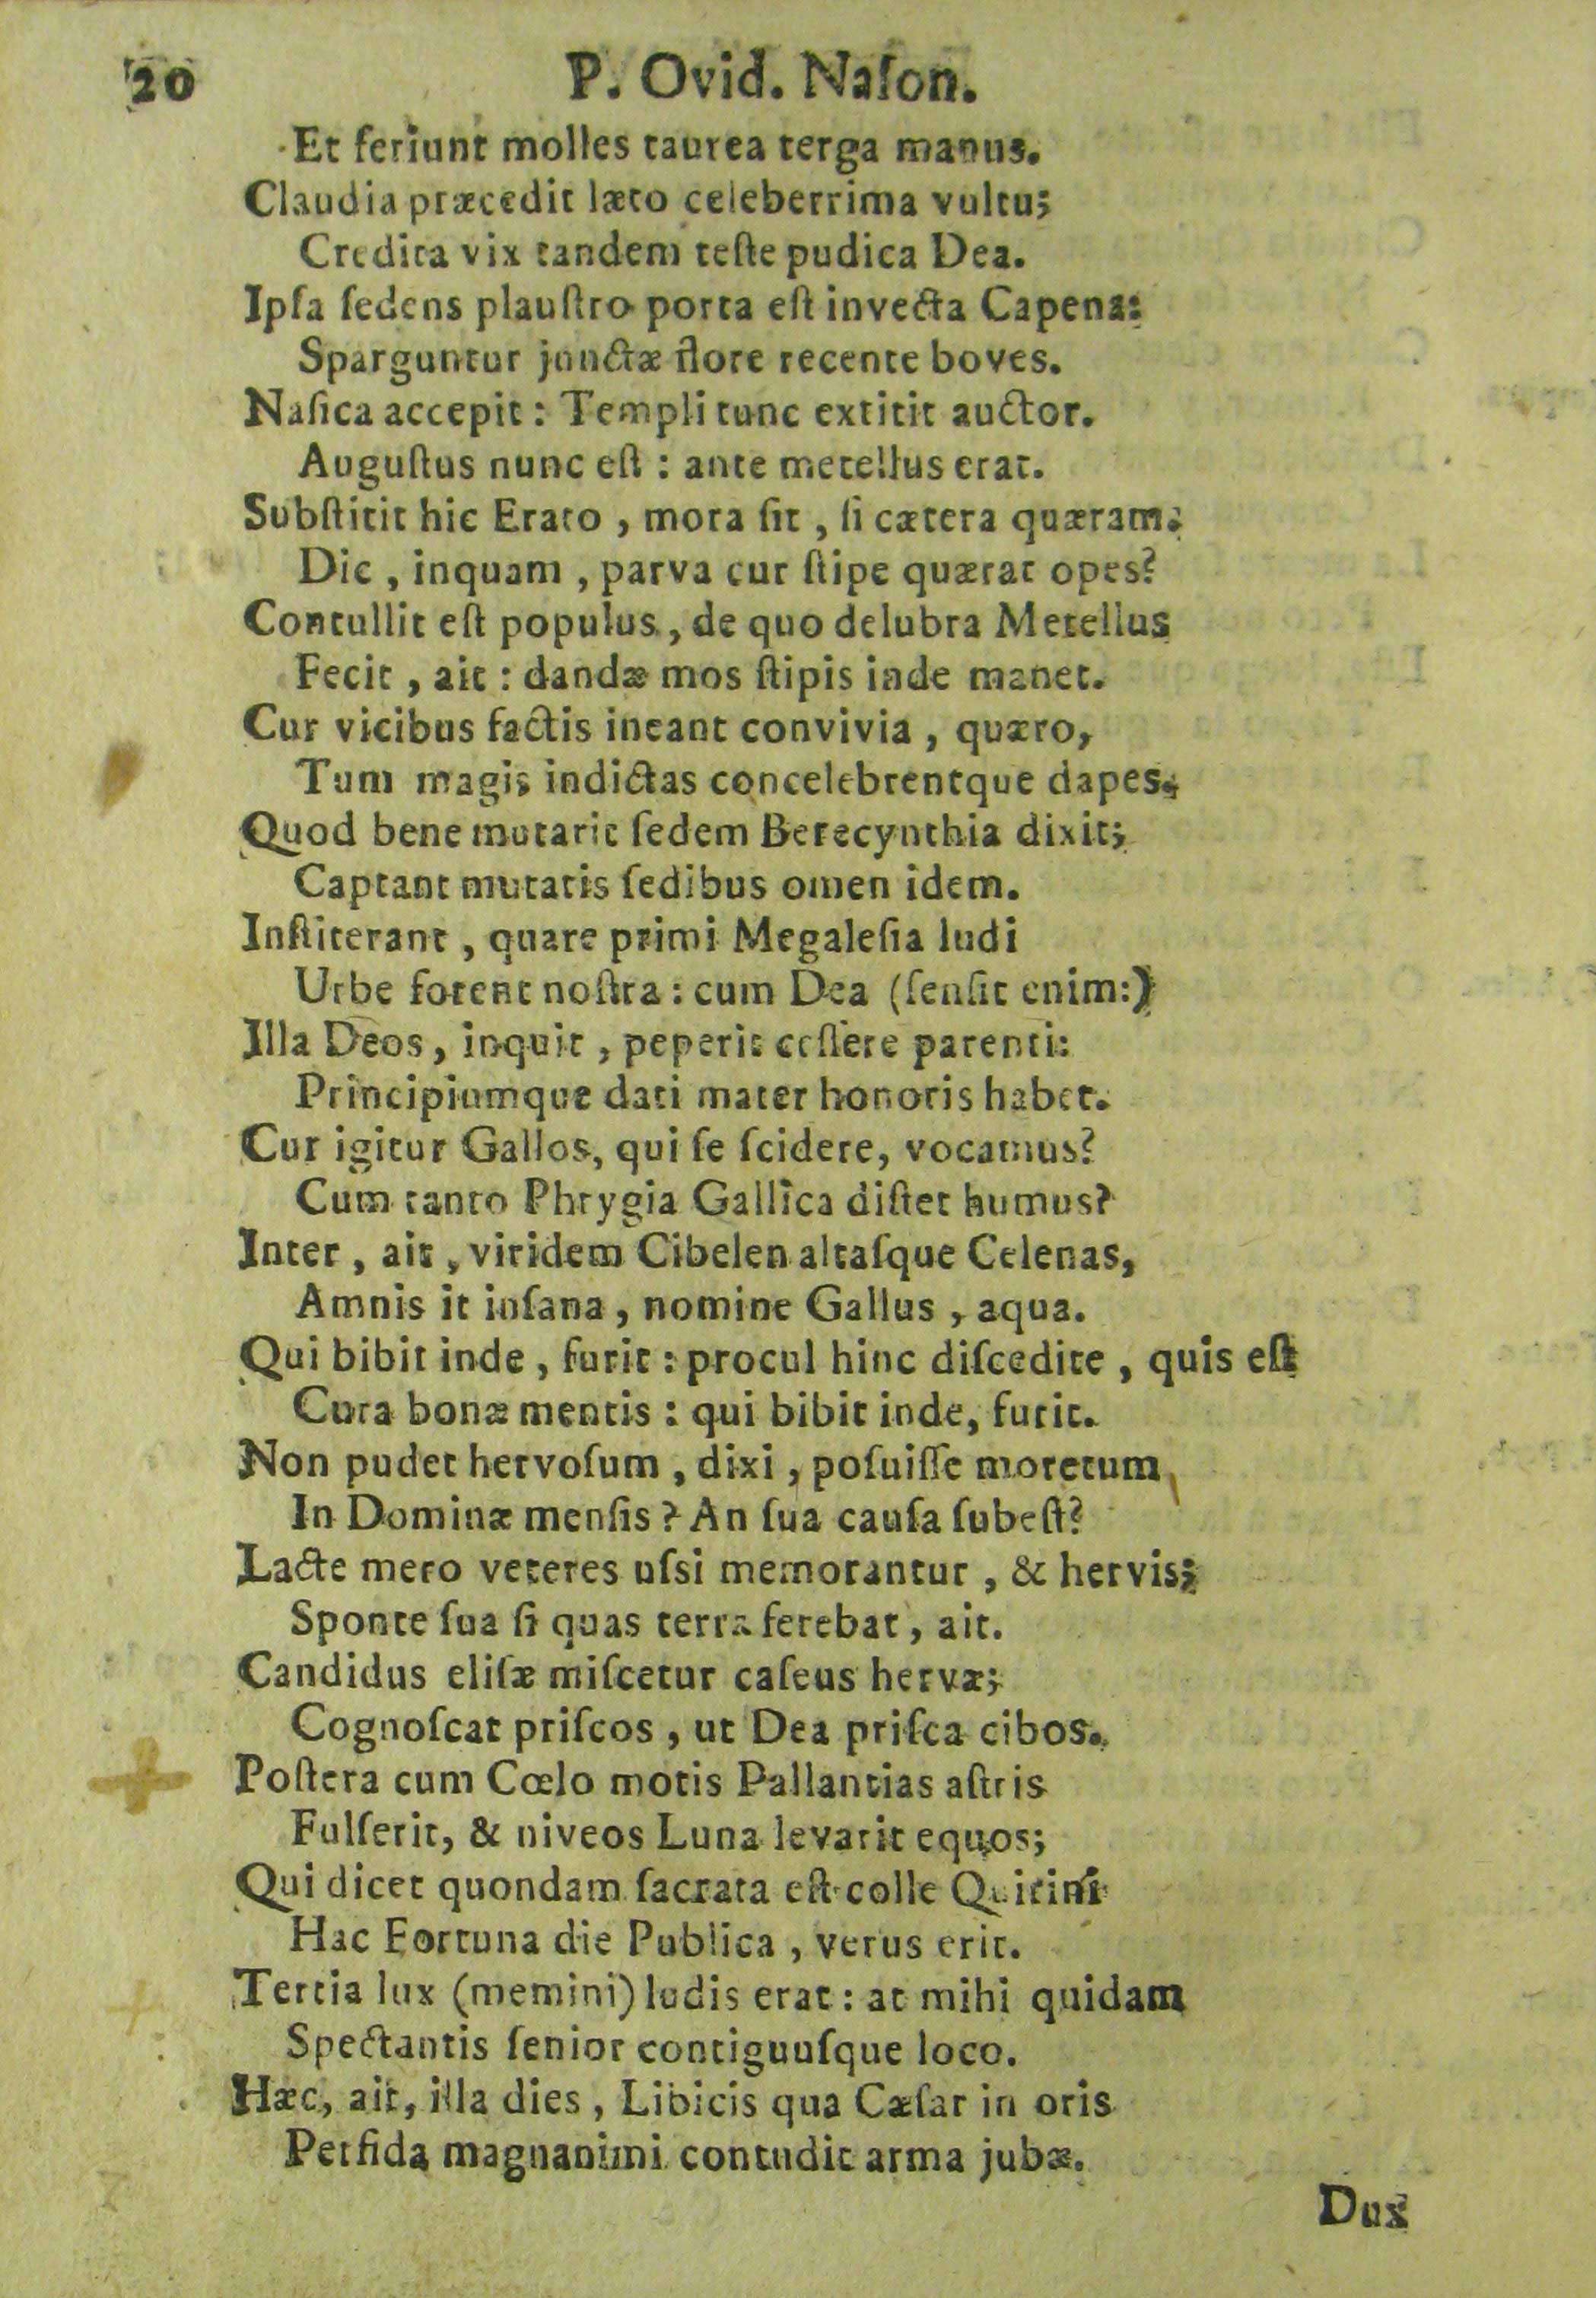 20 P. Ovid. Naſon.
Et feriunt molles taurea terga manus.
Claudia præcedit læto celeberrima vultu;
Credita vix tandem teſte pudica Dea.
Ipſa ſedens plauſtro porta eſt invecta Capena:
Sparguntur junctæ flore recente boves.
Naſica accepit : Templi tunc extitit auctor.
Auguſtus nunc eſt : ante metellus erat.
Subſtitit hic Erato , mora ſit , ſi cætera quæram;
Dic , inquam , parva cur ſtipe quærat opes?
Contullit eſt populus , de quo delubra Metellus
Fecit , ait : dandæ mos ſtipis inde manet.
Cur vicibus factis ineant convivia , quæro,
Tum magis indictas concelebrentque dapes.
Quod bene mutarit ſedem Berecynthia dixit;
Captant mutatis ſedibus omen idem.
Inſtiterant , quare primi Megaleſia ludi
Urbe forent noſtra : cum Dea (ſenſit enim:)
Illa Deos , inquit , peperit ceſſere parenti:
Principiumque dati mater honoris habet.
Cur igitur Gallos, qui ſe ſcidere, vocamus?
Cum tanto Phrygia Gallica diſtet humus?
Inter , ait , viridem Cibelen altaſque Celenas,
Amnis it inſana , nomine Gallus , aqua.
Qui bibit inde , furit : procul hinc diſcedite , quis eſt
Cura bonæ mentis : qui bibit inde, furit.
Non pudet hervoſum , dixi , poſuiſſe moretum
In Dominæ menſis ? An ſua cauſa ſubeſt?
Lacte mero veteres uſsi memorantur , & hervis;
Sponte ſua ſi quas terra ferebat , ait.
Candidus eliſæ miſcetur caſeus hervæ;
Cognoſcat priſcos , ut Dea priſca cibos.
Poſtera cum Cœlo motis Pallantias aſtris
Fulſerit, & niveos Luna levarit equos;
Qui dicet quondam ſacrata eſt colle Quirini
Hac Fortuna die Publica , verus erit.
Tertia lux (memini) ludis erat : at mihi quidam
Spectantis ſenior contiguuſque loco.
Hæc, ait, illa dies , Libicis qua Cæſar in oris
Perfida magnanimi contudit arma jubæ.
Dux